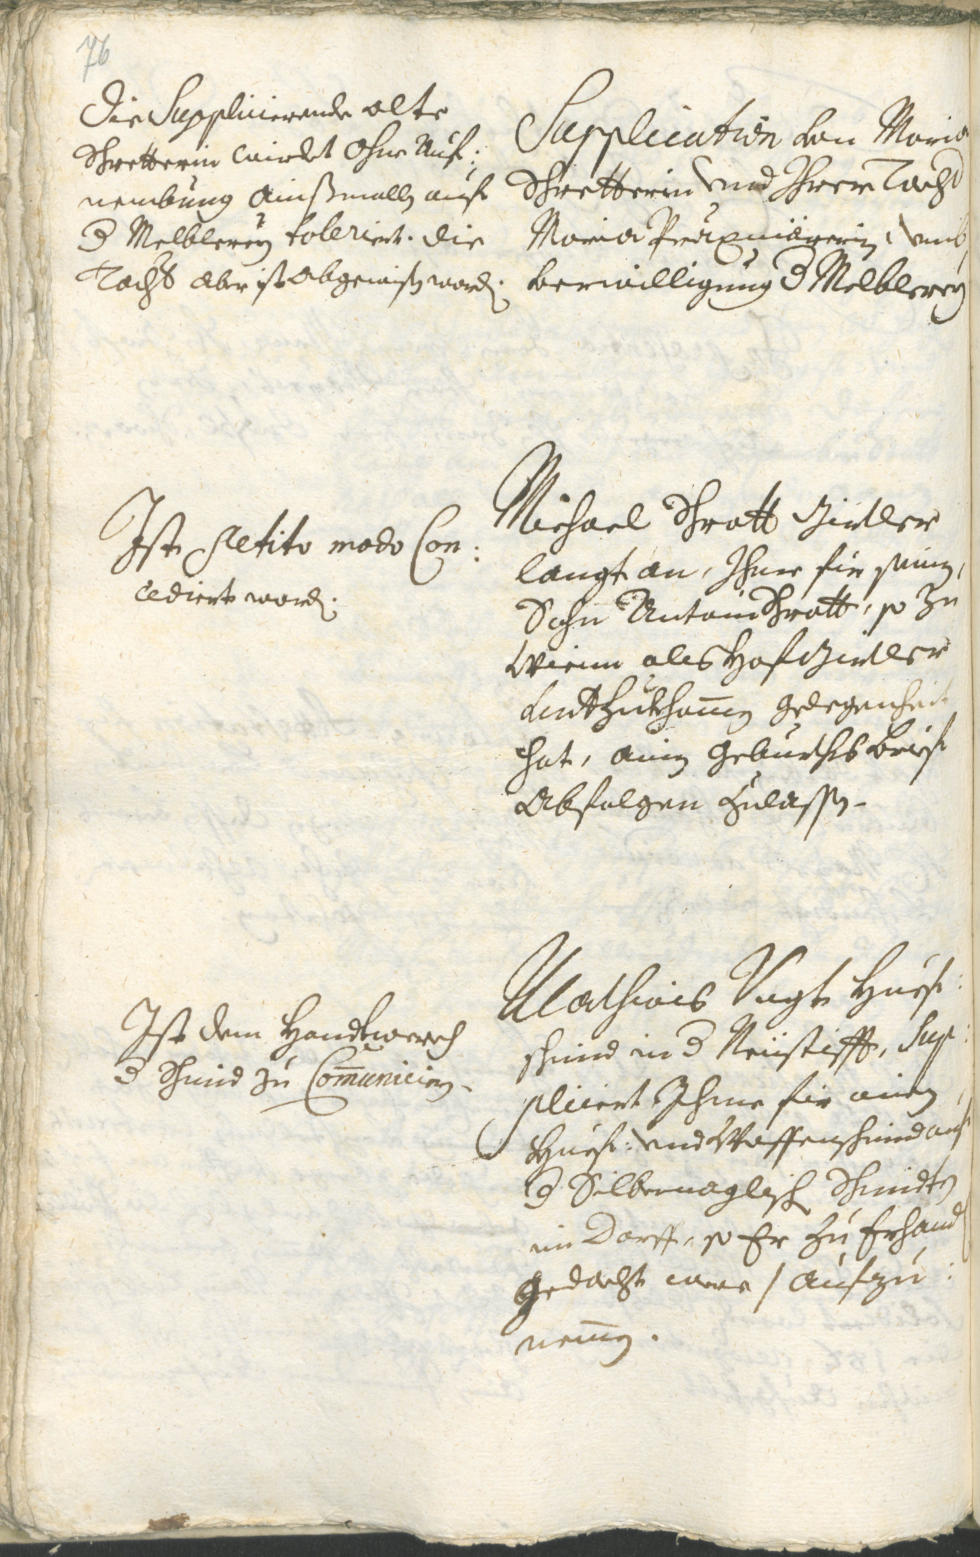 76
Die Supplicierende alte
Schretterin wirdet ohne Auf:
nembung ainßmalls auf
d Melblerey toleriert. die
Tocht aber ist abgewisen word.
Supplication von Maria
Schretterin und Ihrer Tocht
Maria umb
verwilligung d Melblerey
Ist Petito modo Con:
cediert word.
Michael Schrott Zimler
langt an, Ihme für seinen
Sohn Antoni Schrott, so zu
Wienn als Hof Zimler
gelegenheit
hat, ainen Geburths brief
Abfolgen zulassen.
Ist dem Handtwerch
d Schmid zu Communiciern.
Mathias Vogt Huef:
schmid in d Neustifft, Sup:
pliciert Ihme für ainen
Huef: und Waffenschmid auf
d Silbernaglisch Schmidten
im Dorff, so Er zu Erhand
gedacht were / aufzu:
nemen.